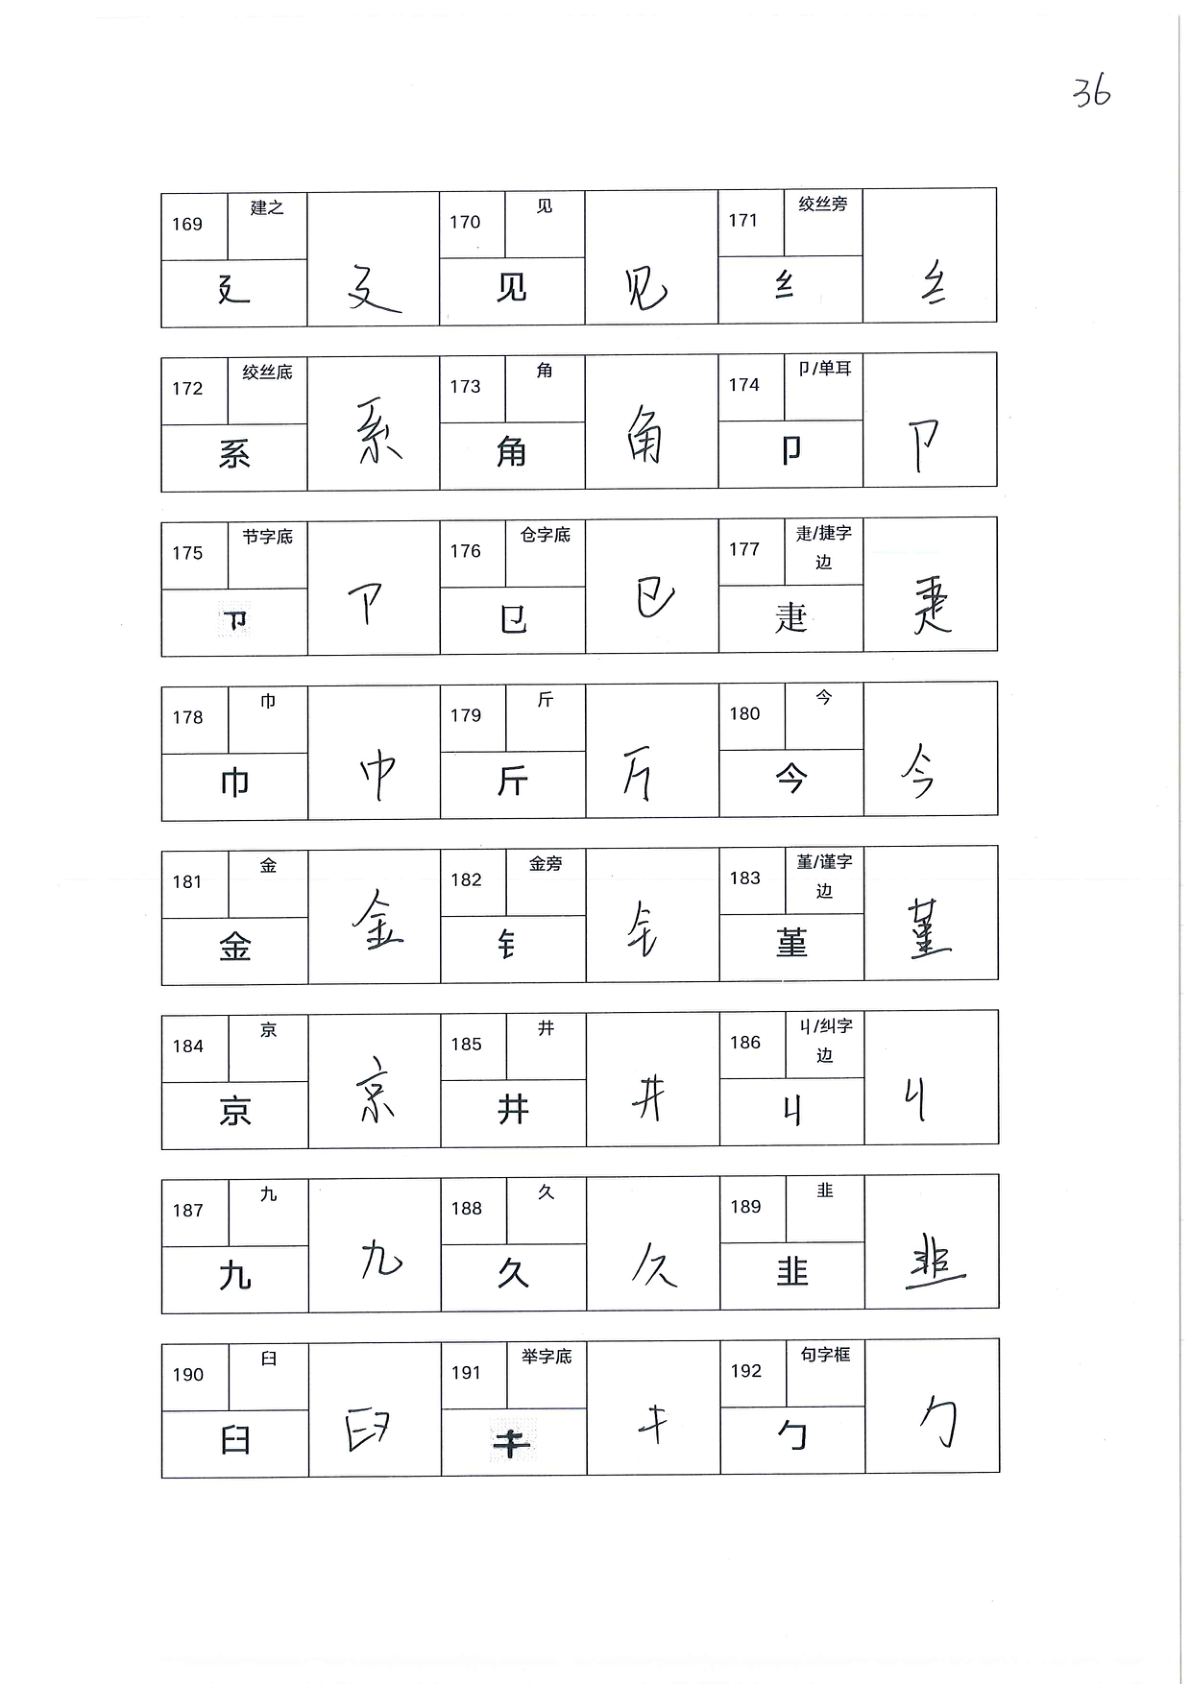 36
169 建之 廴 廴 170 见 见 见 171 绞丝旁 纟 纟
172 绞丝底 系 系 173 角 角 角 174 卩/单耳 卩 卩
175 节字底 卩 卩 176 仓字底 㔾 㔾 177 疌/捷字边 疌 疌
178 巾 巾 巾 179 斤 斤 斤 180 今 今 今
181 金 金 金 182 金旁 钅 钅 183 堇/谨字边 堇 堇
184 京 京 京 185 井 井 井 186 丩/纠字边 丩 丩
187 九 九 九 188 久 久 久 189 韭 韭 韭
190 臼 臼 臼 191 举字底 192 句字框 勹 勹